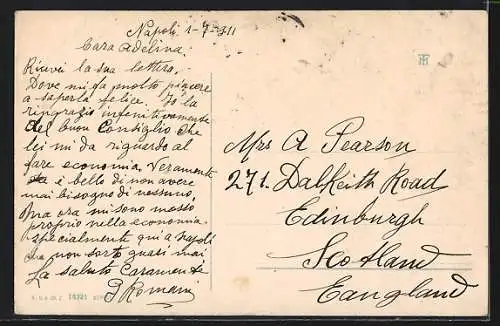 Napoli 1-7-911
Cara Adelina.
Ricevei la sua lettera.
Dove mi fa molto piacere
a saperla felice. Io la
ringrazio infinitivamente
del buon Consiglio che
lei mi da riguardo al
fare economia. Veramente
è bello di non avere
mai bisogno di nessuno,
Ma ora mi sono messo
proprio nella economia
specialmente qui a Napoli
non sorto quasi mai
La saluto Caramente
G Romani
Mrs A Pearson
271. Dalkeith Road
Edinburgh
Scotland
Eangland